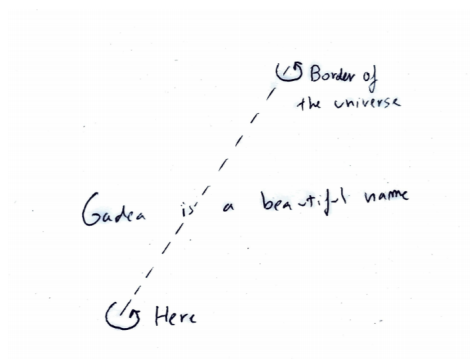 Border of
the universe
Gadea is a beautiful name
Here